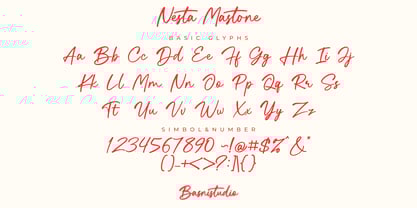 Nesta Mastone
BASIC GLYPHS
Aa Bb Cc Dd Ee Ff Gg Hh Ii Jj
Kk Ll Mm Nn Oo Pp Qq Rr Ss
Tt Uu Vv Ww Xx Yy Zz
SIMBOL&NUMBER
1234567890 ~!@#$%^&*
()_+<>?:|{}
Basnistudio